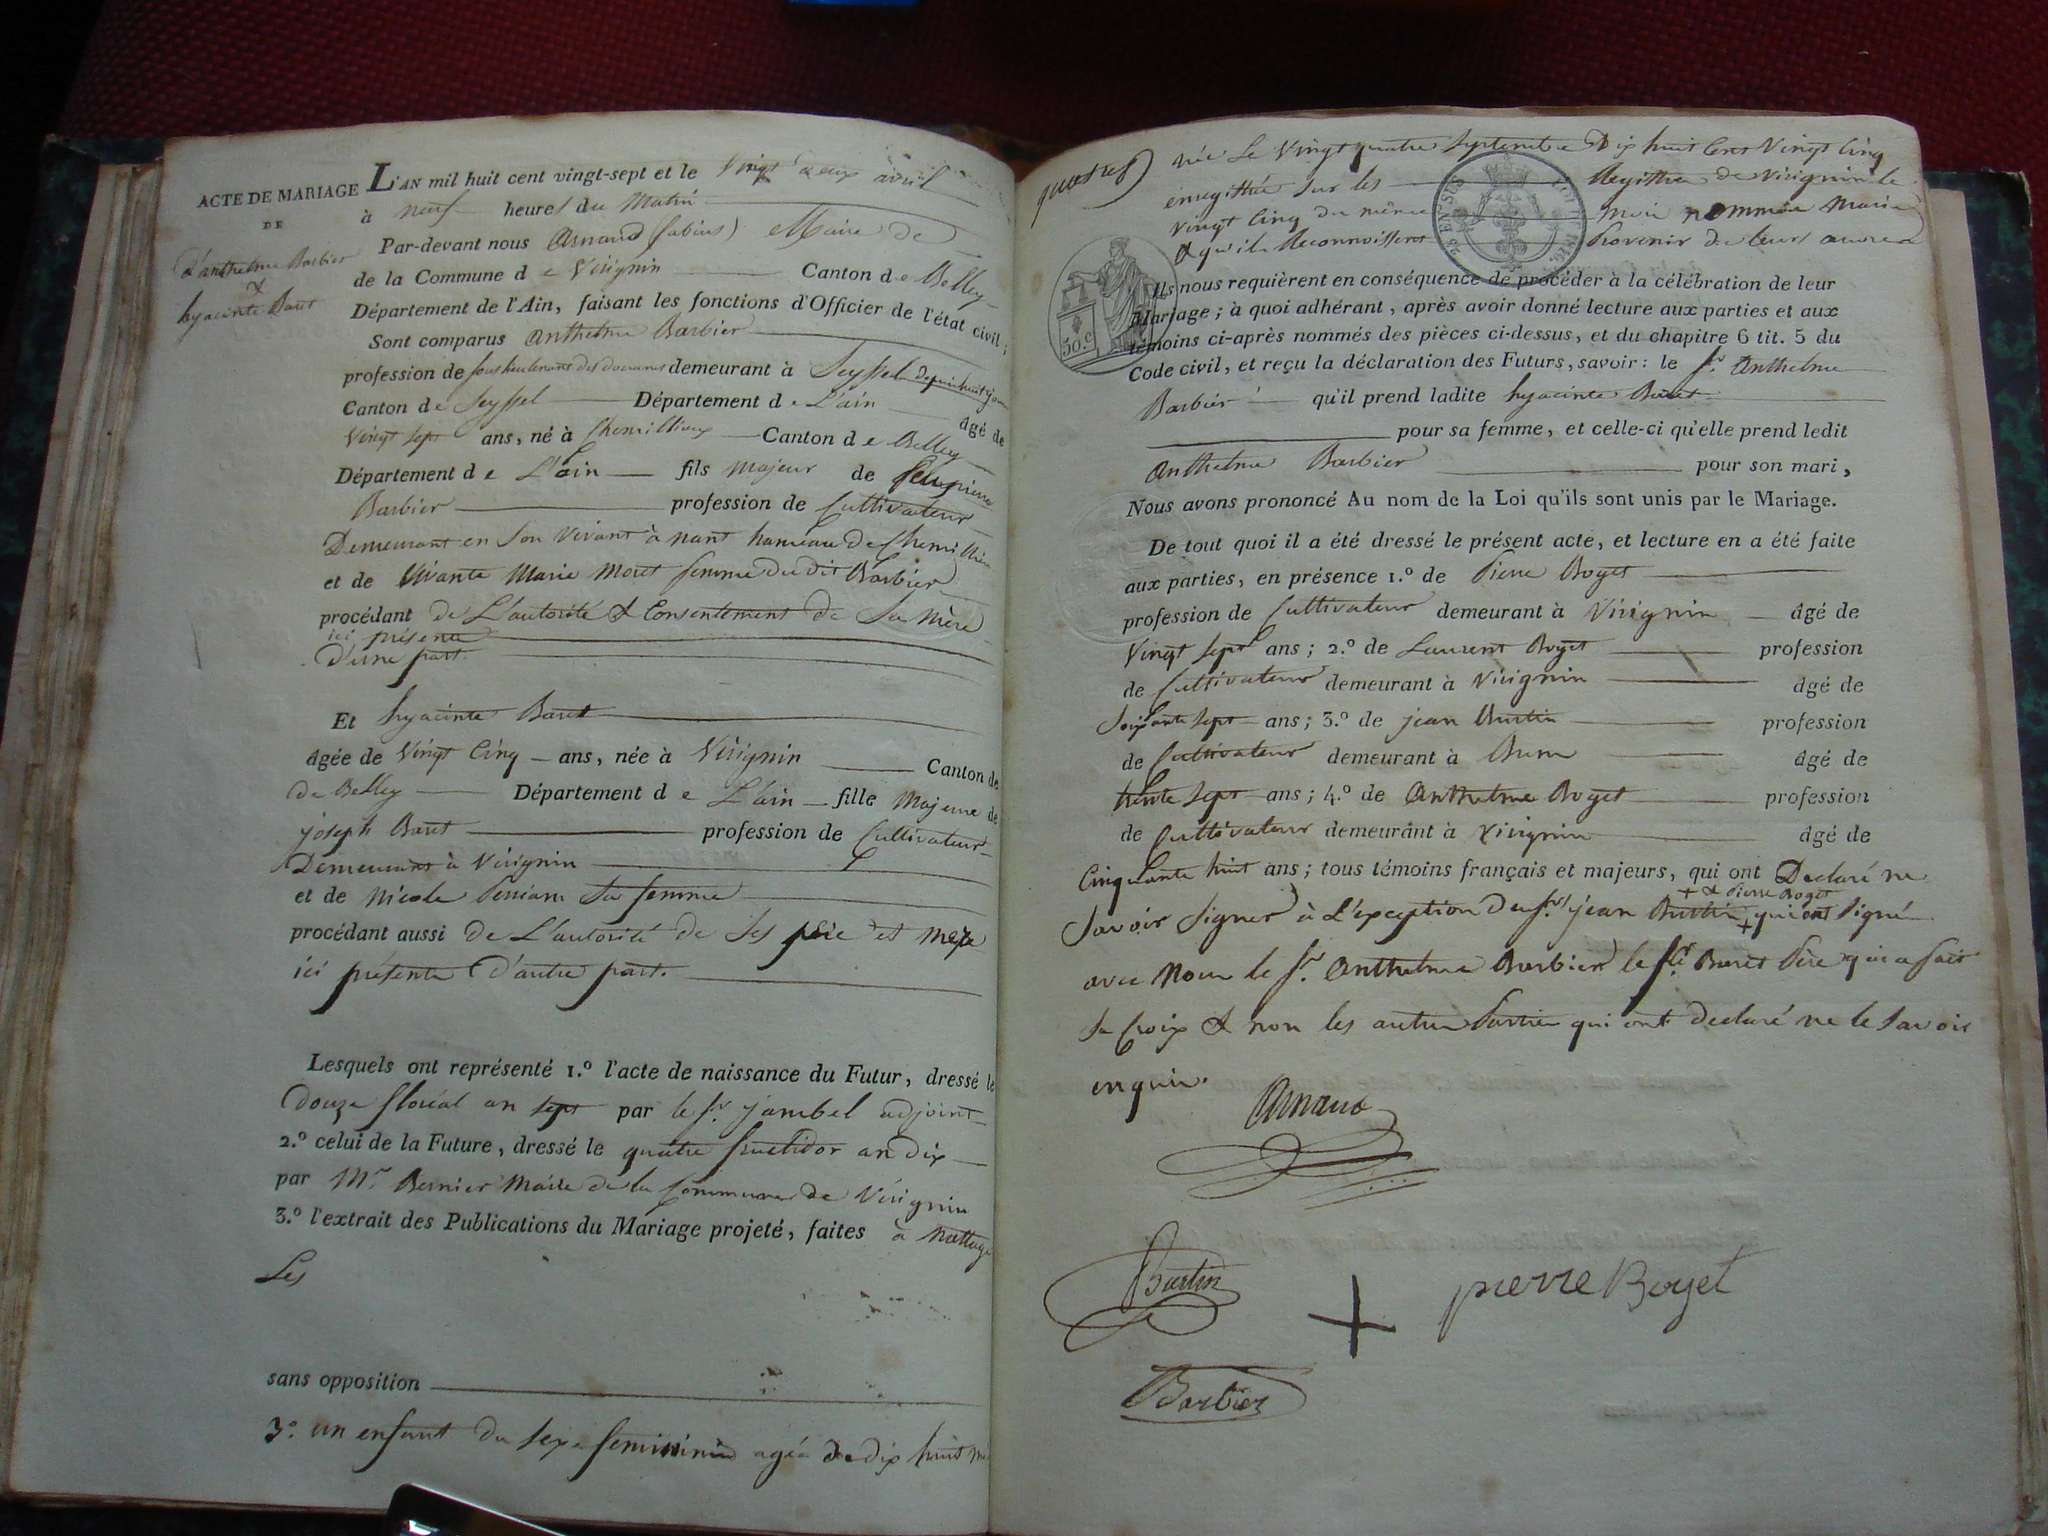 ACTE DE MARIAGE
DE
d'anthelme Barbier
&
hyacinte Baret
L'AN mil huit cent vingt-sept et le Vingt deux avril
à neuf heures du Matin
Par-devant nous Arnaud (fabius) Maire de
de la Commune de Virignin Canton de Belley
Département de l'Ain, faisant les fonctions d'Officier de l'état civil;
Sont comparus Anthelme Barbier
profession de sous lieutenant des douanes demeurant à Seyssel depuis huit jours
Canton de Seyssel Département de L'ain âgé de
Vingt sept ans, né à Chemillieux Canton de Belley
Département de L'ain fils majeur de feu pierre
Barbier profession de Cultivateur
Demeurant en Son Vivant à nant hameau de Chemillieu
et de Vivante Marie Moret femme du dit Barbier
procédant de L'autorité & Consentement de Sa Mère
ici présente
d'une part.
Et hyacinte Baret
âgée de Vingt Cinq ans, née à Virignin Canton de
de Belley Département de L'ain fille Majeure de
joseph Baret profession de Cultivateur
Demeurant à Virignin
et de Nicole sa femme
procédant aussi de L'autorité de Ses père et mère
ici présents d'autre part.
Lesquels ont représenté 1.º l'acte de naissance du Futur, dressé le
Douze floréal an sept par le Sr. jambel adjoint
2.º celui de la Future, dressé le quatre fructidor an dix
par Mr. Bernier Maire de la Commune de Virignin
3.º l'extrait des Publications du Mariage projeté, faites à nattage
Les
sans opposition
3º. un enfant du sexe feminin agée de dix huit m
née le Vingt quatre Septembre Dix huit Cent Vingt Cinq
enregistrée sur les Registres de Virignin le
Vingt Cinq du même mois nommée Marie
& qu'ils Reconnoissent Provenir de leurs œuvres
30.c
Ils nous requièrent en conséquence de procéder à la célébration de leur
Mariage; à quoi adhérant, après avoir donné lecture aux parties et aux
témoins ci-après nommés des pièces ci-dessus, et du chapitre 6 tit. 5 du
Code civil, et reçu la déclaration des Futurs, savoir: le Sr. Anthelme
Barbier qu'il prend ladite hyacinte Baret
pour sa femme, et celle-ci qu'elle prend ledit
Anthelme Barbier pour son mari,
Nous avons prononcé Au nom de la Loi qu'ils sont unis par le Mariage.
De tout quoi il a été dressé le présent acte, et lecture en a été faite
aux parties, en présence 1.º de Pierre Boget
profession de Cultivateur demeurant à Virignin âgé de
Vingt sept ans; 2.º de Laurent Boget profession
de Cultivateur demeurant à Virignin âgé de
Soixante sept ans; 3.º de jean Burtin profession
de Cultivateur demeurant à âgé de
trente sept ans; 4.º de Anthelme Boget profession
de Cultivateur demeurant à Virignin âgé de
Cinquante huit ans; tous témoins français et majeurs, qui ont Declaré ne
+ & Pierre Boget
Savoir Signer à L'exception du Sr. jean Burtin + qui ont Signé
avec Nous le Sr. Anthelme Barbier le Sr. Baret Père qui a fait
Sa Croix & non les autres Parties qui ont declaré ne le Savoir
enquis.
Arnaud
Burtin
+
pierre Boget
Barbier